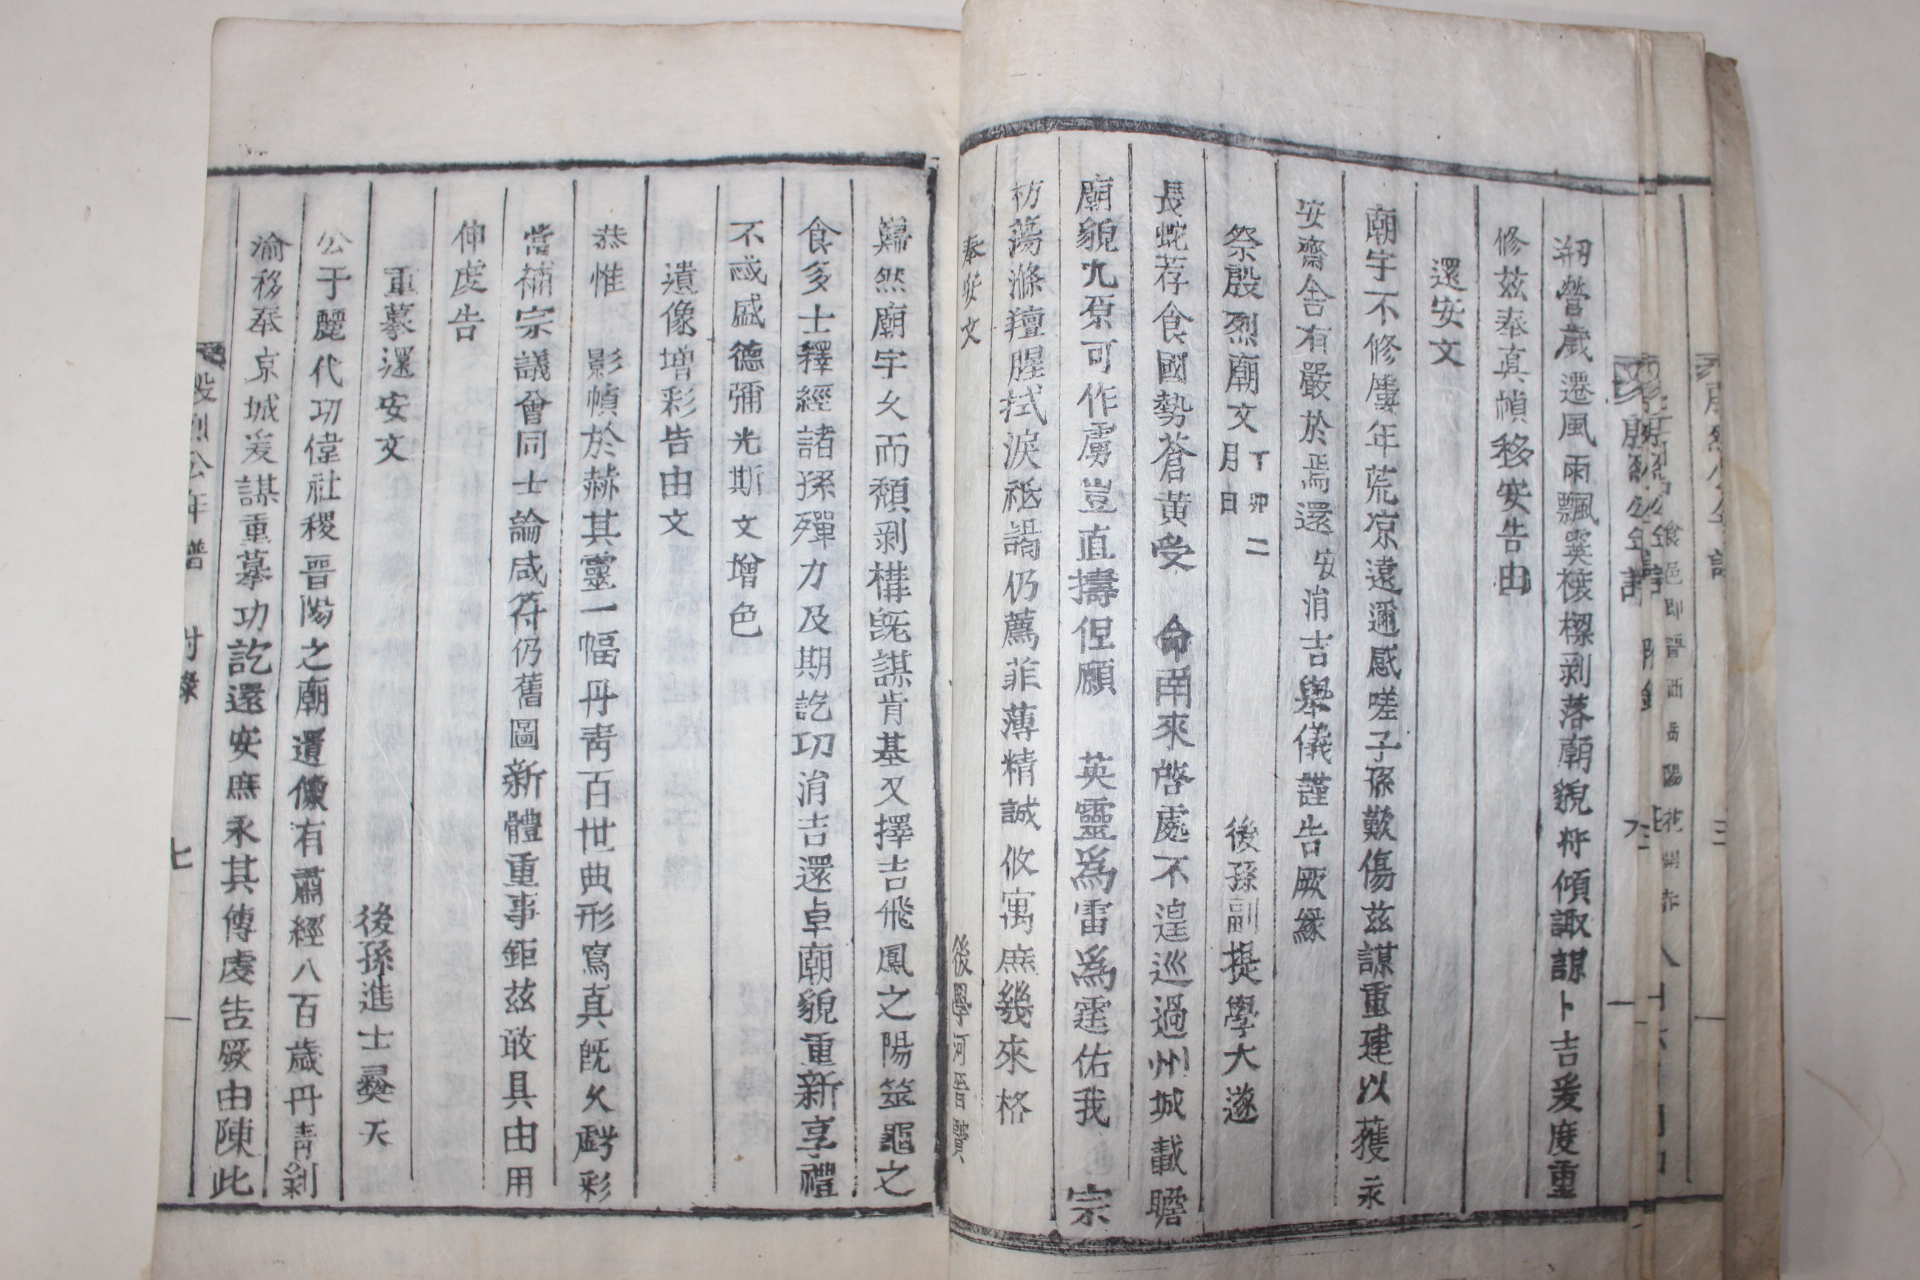 刱營歲遷風雨飄䬟榱樑剥落廟貌將傾諏謀卜吉爰度重
修玆奉真幀移安告由
還安文
廟宇不修屢年荒凉遠邇感嗟子孫歎傷玆謀重建以獲永
安齋舍有嚴於焉還安消吉舉儀謹告厥緣
祭殷烈廟文丁卯二月日 後孫副提學大遂
長蛇荐食國勢蒼黃受 命南來啓處不遑巡過州城載瞻
廟貌九原可作虜豈直擣但願 英靈爲雷爲霆佑我 宗
祊蕩滌羶腥拭淚祗謁仍薦菲薄精誠攸寓庶幾來格
奉安文 後學河晋賢
巋然廟宇久而頹剥構旣謀肯基又擇吉飛鳳之陽筮龜之
食多士釋經諸孫殫力及期訖功消吉還卓廟貌重新享禮
不忒盛德彌光斯文增色
遺像增彩告由文
恭惟 影幀於赫其靈一幅丹靑百世典形寫真旣久虧彩
當補宗議僉同士論咸符仍舊圖新體重事鉅玆敢具由用
伸虔告
重摹還安文 後孫進士彛天
公于麗代功偉社稷晋陽之廟遺像有肅經八百歲丹靑剥
渝移奉京城爰謀重摹功訖還安庶永其傳虔告厥由陳此
殷烈公年譜 付錄 七